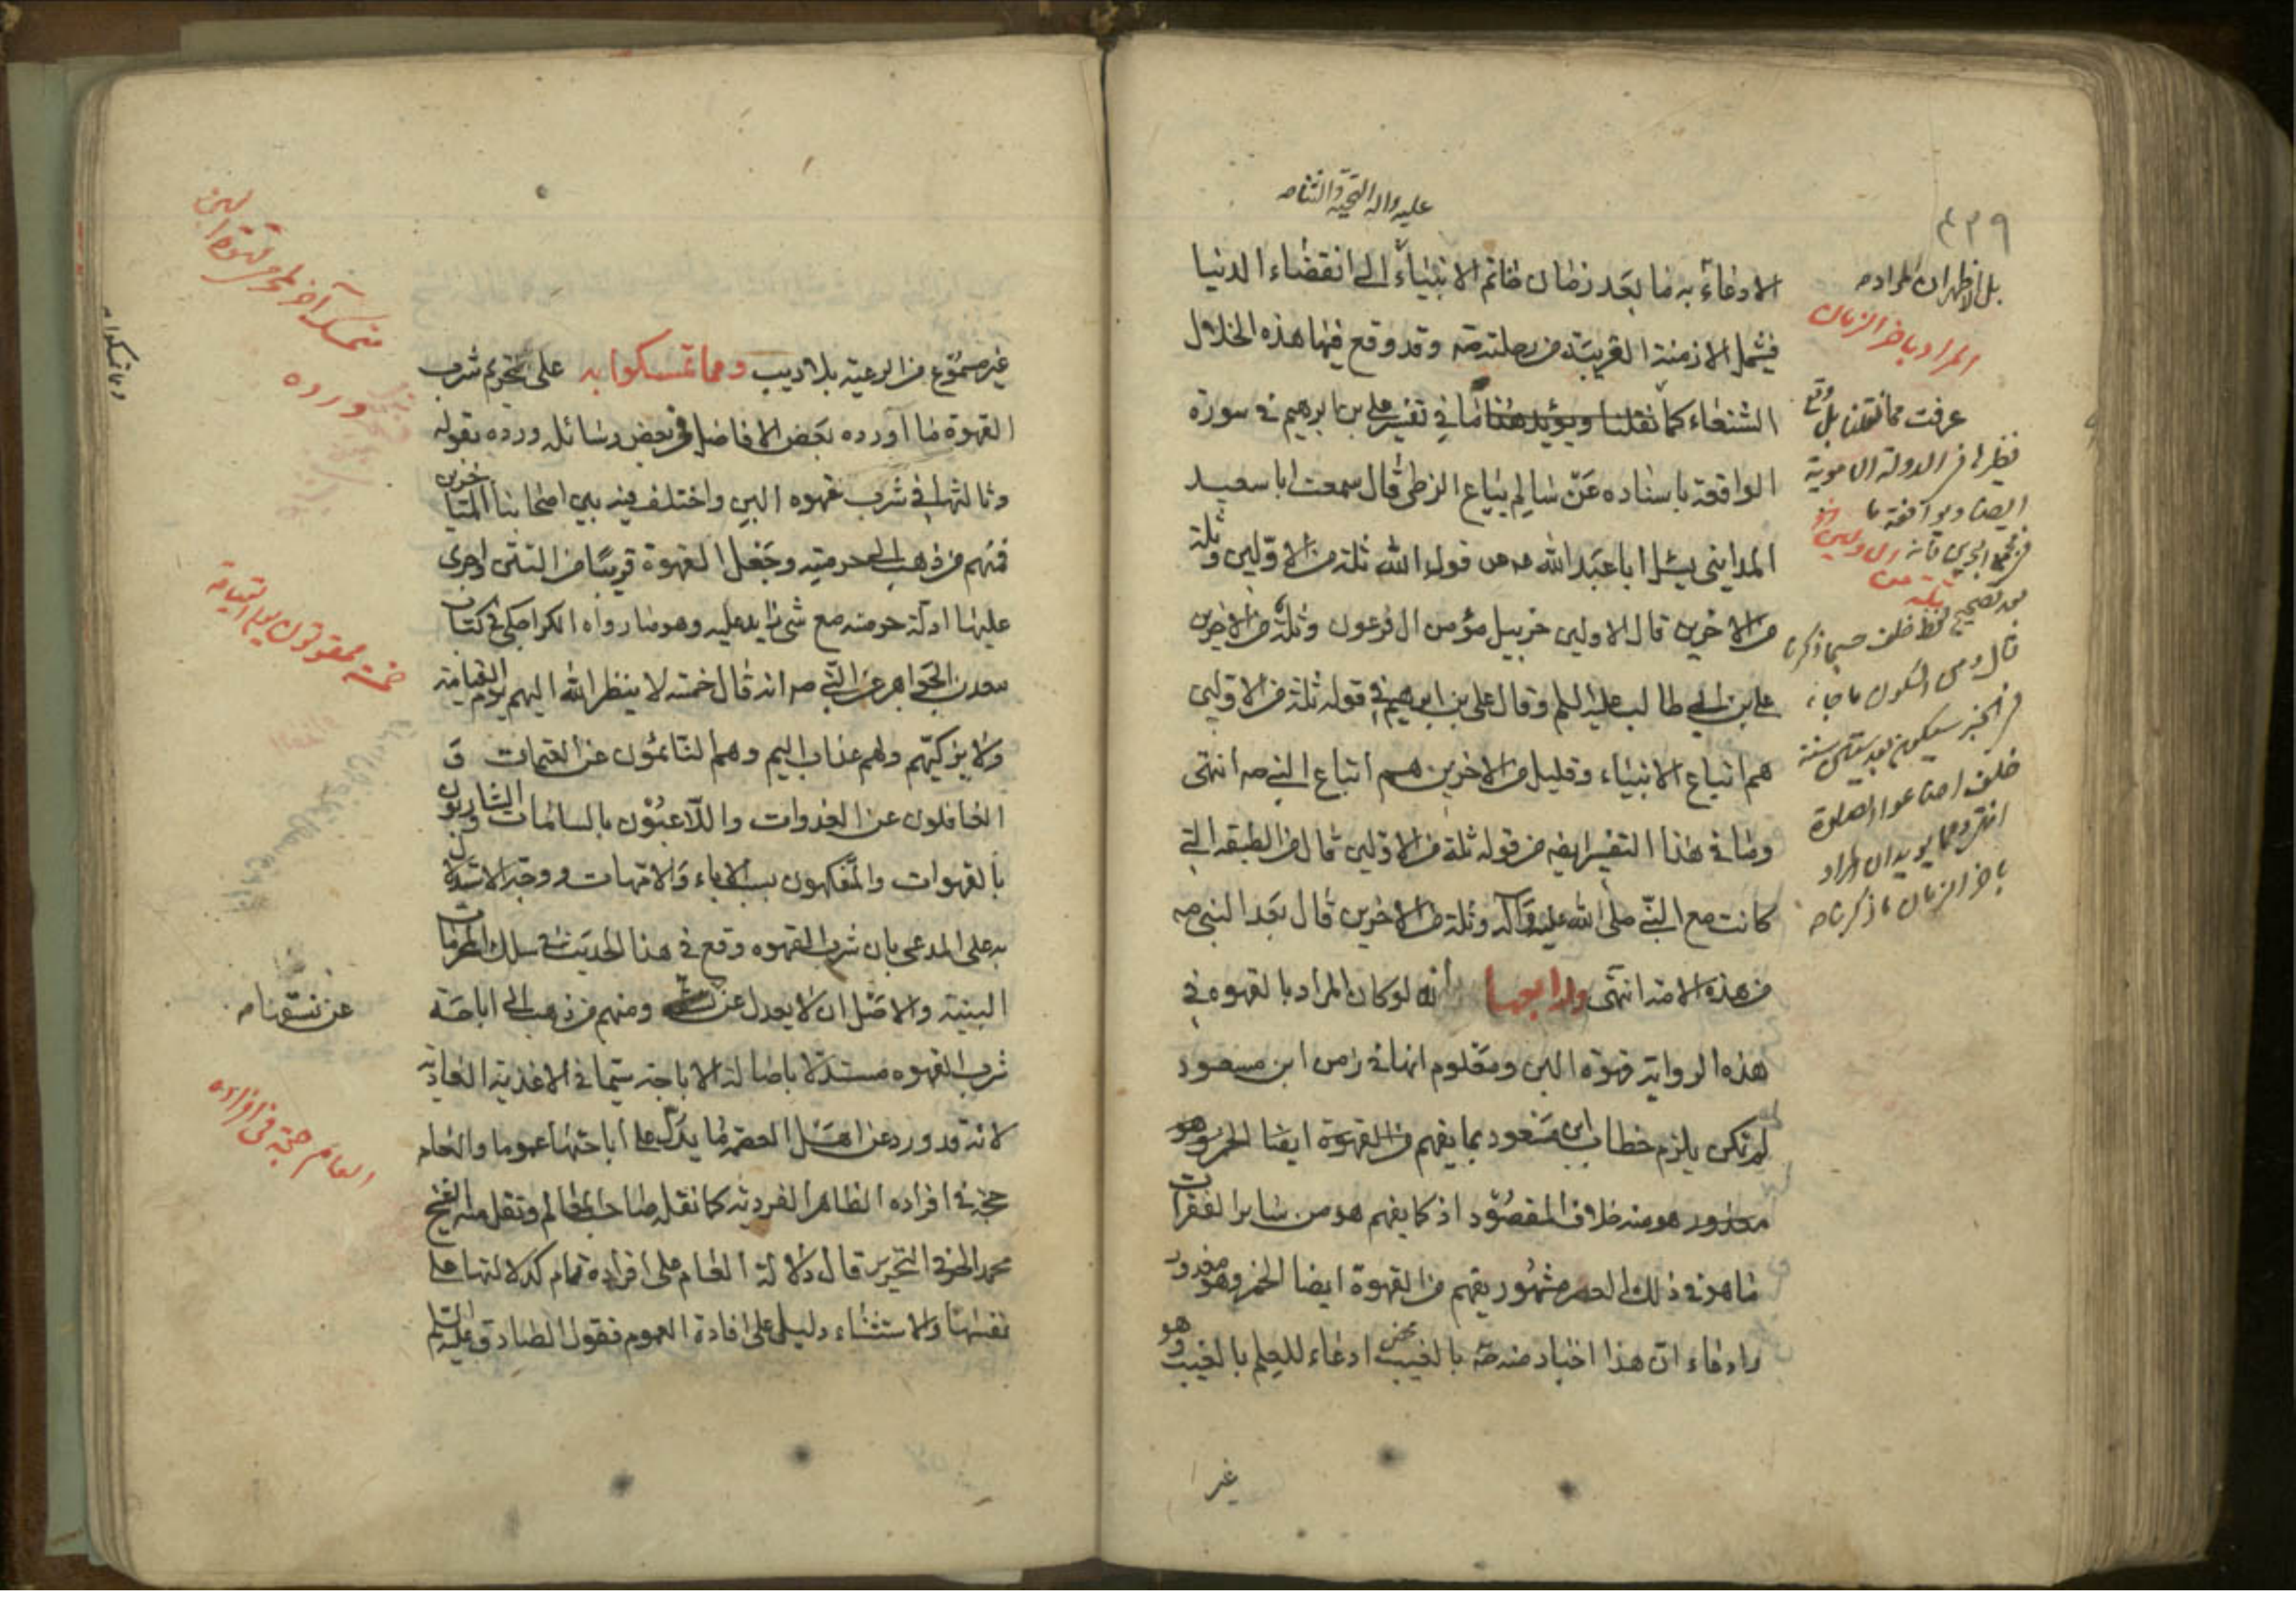 عليه واله التحية والثناء
٤٣٩
الا دعاء به ما بعد زمان خاتم الانبياء الى انقضاء الدنيا
فيشمل الازمنة القريبة من رحلته صه وقد وقع فيها هذه الخلال
الشنعاء كما نقلنا ويؤيد هذا ما في تفسير علي بن ابرهيم في سورة
الواقعة باسناده عن سالم بياع الزطي قال سمعت ابا سعيد
المدايني يسئل ابا عبد الله عن قول الله ثلة من الاولين وثلة
من الاخرين قال الاولين خربيل مؤمن ال فرعون وثلة من الاخرين
علي بن ابي طالب عليه السلم وقال علي بن ابرهيم في قوله ثلة من الاولين
هم اتباع الانبياء وقليل من الاخرين هم اتباع النبي صه انتهى
وما في هذا التفسير ايضه من قوله ثلة من الاولين قال من الطبقه التي
كانت مع النبي صلى الله عليه وآله وثلة من الاخرين قال بعد النبي صه
من هذه الامة انتهى ورابعها انه لو كان المراد بالقهوه في
هذه الرواية قهوة البن ومعلوم انها في زمن ابن مسعود
لم تكن يلزم خطاب ابن مسعود بما يفهم من القهوة ايضا الخمر وهو
محذور هو منه خلاف المقصود اذ كما يفهم هو من ساير الفقرات
ما هو في ذلك العصر مشهور يفهم من القهوة ايضا الخمر وهو محذور
وادعاء ان هذا اخبار منه صه بالغيب محض ادعاء للعلم بالغيب وهو
غير
بل الاظهر ان المراد
المراد باخر الزمان
عرفت مما نقلنا بل وقع
نظيرها في الدولة الاموية
ايضا
قال
خلف اضاعوا الصلوة
انتهى ومما يويد ان المراد
باخر الزمان ما ذكرناه
غير مسموع من الرعية بلا ديب ومما تمسكوا به على تحريم شرب
القهوة ما اورده بعض الافاضل في بعض رسائله ورده بقوله
وثالثها في شرب قهوه البن واختلف فيه بين اصحابنا المتاخرين
فمنهم من ذهب الى حرمته وجعل القهوة قريبا من التتن واجرى
عليها ادلة حرمته مع شئ زايد عليه وهو ما رواه الكراجكي في كتاب
معدن الجواهر عن النبي صه انه قال خمسة لا ينظر الله اليهم يوم القيامة
ولا يزكيهم ولهم عذاب اليم وهم النائمون عن العتمات و
الغافلون عن الغدوات واللاعبون بالسامات والشاربون
بالقهوات والمتفكهون بسب الاباء والامهات ووجه الاستدلال
به على المدعى بان شرب القهوه وقع في هذا الحديث في سلك المحرمات
البينة والاصل ان لا يعدل عن ومنهم من ذهب الى اباحة
شرب القهوه مستدلا باصالة الاباحة سيما في الاغذية العادية
لانه قد ورد عن اهل العصمة ما يدل على اباحتها عموما والعام
حجة في افراده الظاهر الفردية كما نقله صاحب المعالم ونقل منه الشيخ
محمد الحر في التحرير قال دلالة العام على افراده تمام كدلالتها على
نفسها والاستثناء دليل على افادة العموم فقول الصادق عليه السلم
متمسك آخر لحرمة قهوة البن
ورده
خمسة ممقوتون يوم القيامة
عن نسقها صه
العام حجة في افراده
وما تمسكوا به